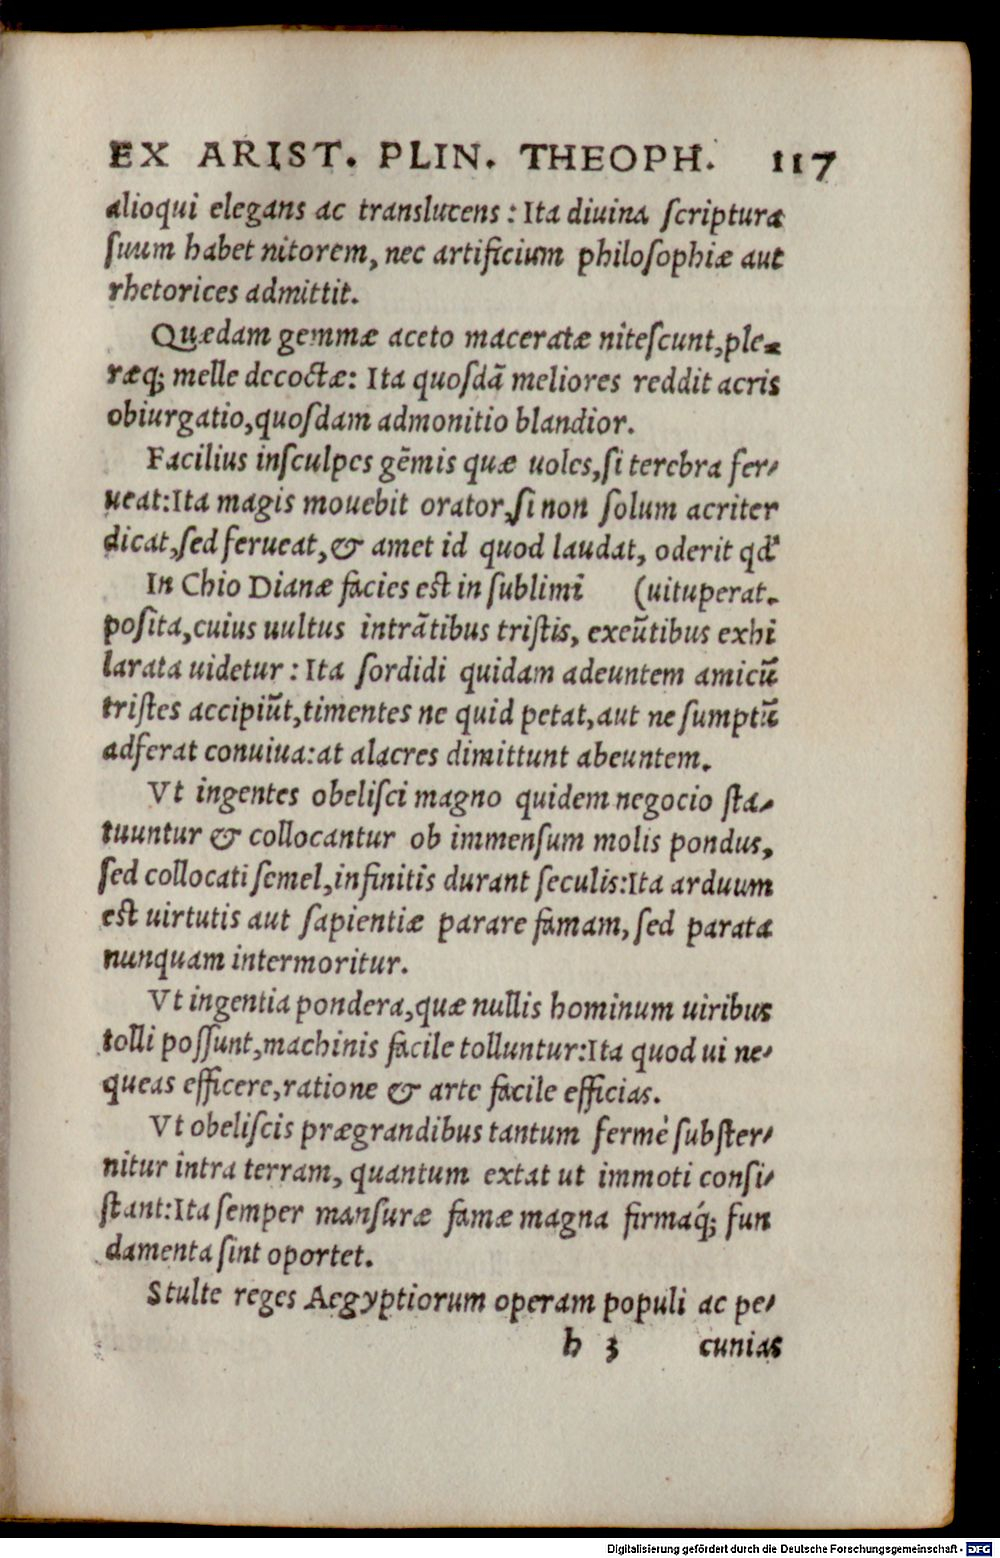 EX ARIST. PLIN. THEOPH. 117
alioqui elegans ac translucens : Ita diuina ſcriptura
ſuum habet nitorem, nec artificium philoſophiæ aut
rhetorices admittit.
Quædam gemmæ aceto maceratæ niteſcunt, ple-
ræq; melle decoctæ: Ita quoſdã meliores reddit acris
obiurgatio, quoſdam admonitio blandior.
Facilius inſculpes gẽmis quæ uoles, ſi terebra fer-
ueat: Ita magis mouebit orator, ſi non ſolum acriter
dicat, ſed ferueat, & amet id quod laudat, oderit qđ
In Chio Dianæ facies est in ſublimi (uituperat.
poſita, cuius uultus intrãtibus triſtis, exeũtibus exhi
larata uidetur : Ita ſordidi quidam adeuntem amicũ
triſtes accipiũt, timentes ne quid petat, aut ne ſumptũ
adferat conuiua: at alacres dimittunt abeuntem.
Vt ingentes obeliſci magno quidem negocio ſta-
tuuntur & collocantur ob immenſum molis pondus,
ſed collocati ſemel, infinitis durant ſeculis: Ita arduum
est uirtutis aut ſapientiæ parare famam, ſed parata
nunquam intermoritur.
Vt ingentia pondera, quæ nullis hominum uiribus
tolli poſſunt, machinis facile tolluntur: Ita quod ui ne-
queas efficere, ratione & arte facile efficias.
Vt obeliſcis prægrandibus tantum fermè ſubſter-
nitur intra terram, quantum extat ut immoti conſi-
ſtant: Ita ſemper manſuræ famæ magna firmaq́; fun
damenta ſint oportet.
Stulte reges Aegyptiorum operam populi ac pe-
h 3 cunias
Digitalisierung gefördert durch die Deutsche Forschungsgemeinschaft - DFG